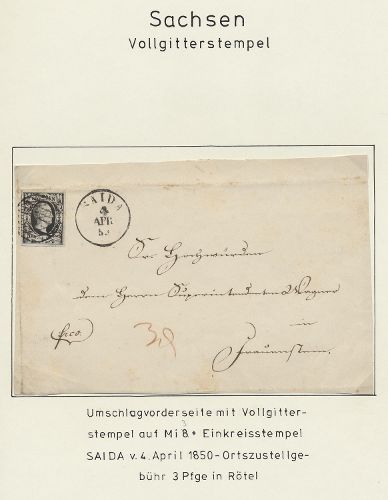 Sachsen
Vollgitterstempel
SAIDA
4
APR
Sr. Hochwürden
dem Herrn Superintendenten Wagner
in
frco.
Frauenstein.
Umschlagvorderseite mit Vollgitter-
stempel auf Mi 8 + Einkreisstempel
SAIDA v. 4. April 1850-Ortszustellge-
bühr 3 Pfge in Rötel